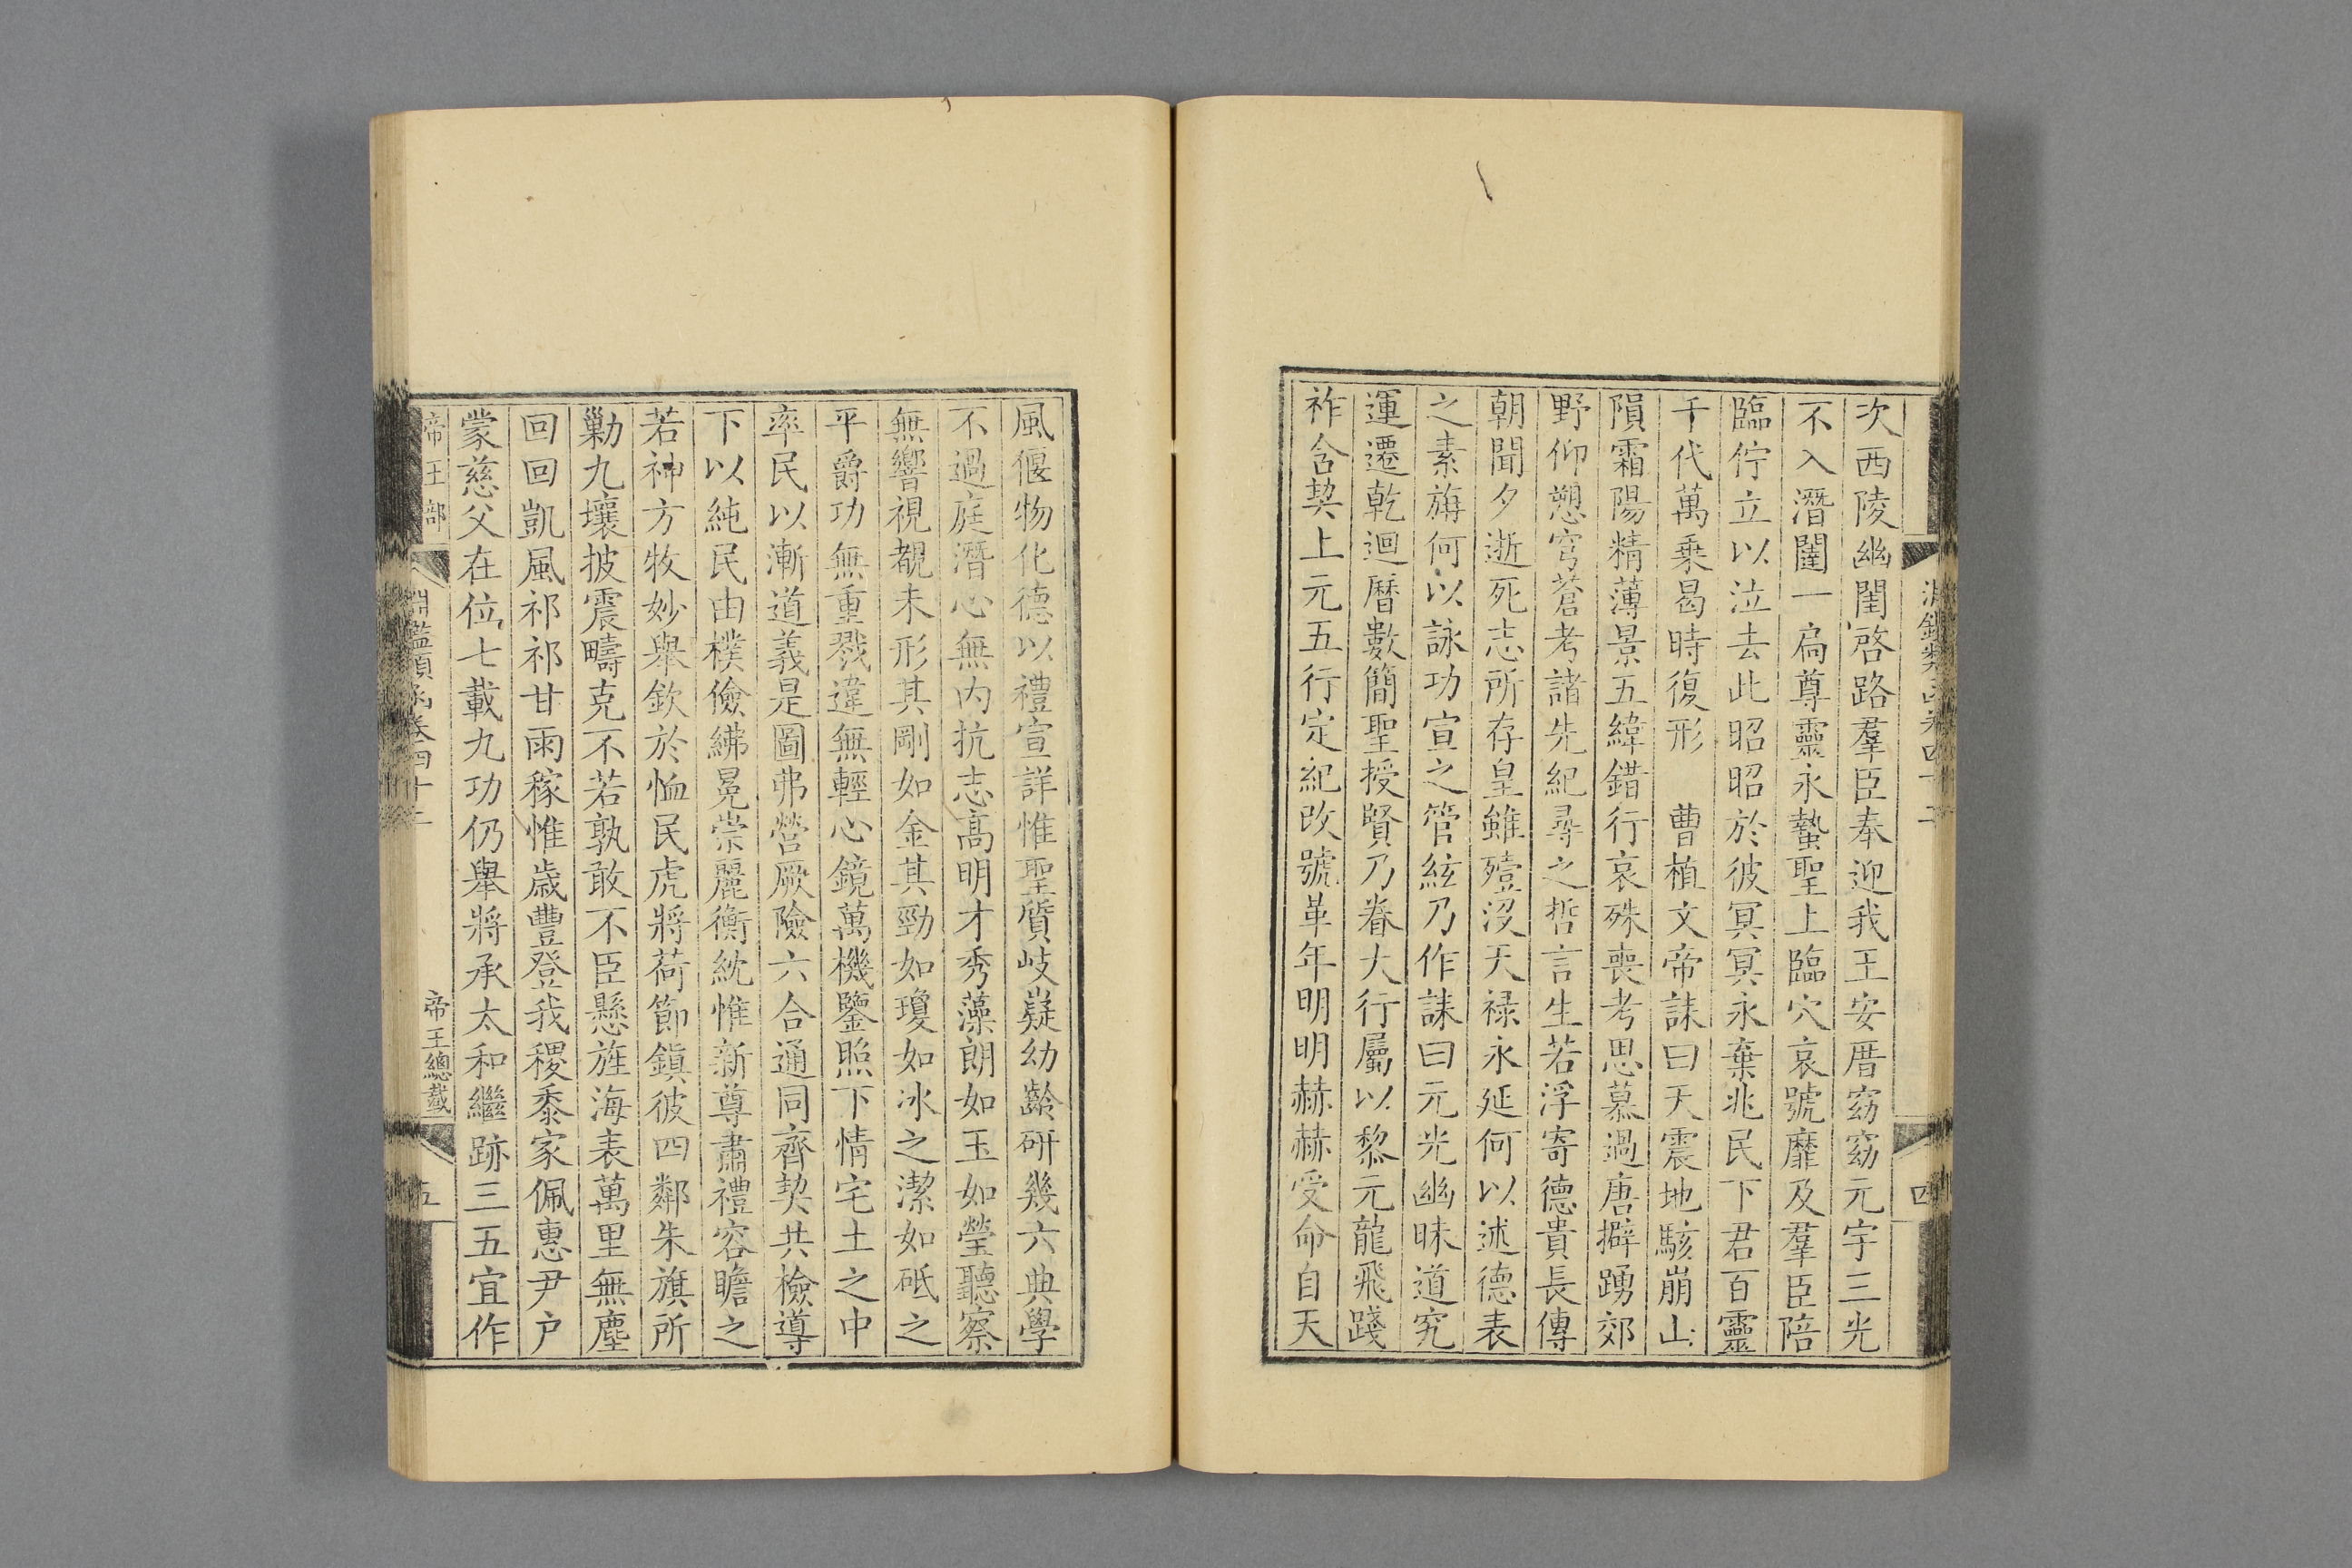 次西陵幽閨啓路羣臣奉迎我王安厝窈窈元宇三光
不入潛闥一扃尊靈永蟄聖上臨穴哀號靡及羣臣陪
臨佇立以泣去此昭昭於彼冥冥永棄兆民下君百靈
千代萬乗曷時復形　曹植文帝誄曰天震地駭崩山
隕霜陽精薄景五緯錯行哀殊喪考思慕過唐擗踴郊
野仰愬穹蒼考諸先紀尋之哲言生若浮寄德貴長傳
朝聞夕逝死志所存皇雖殪沒天禄永延何以述德表
之素旃何以詠功宣之管絃乃作誄曰元光幽昧道究
運遷乾迴曆數簡聖授賢乃眷大行屬以黎元龍飛踐
祚合契上元五行定紀改號革年明明赫赫受命自天
四
風偃物化德以禮宣詳惟聖質岐嶷幼齡研幾六典學
不過庭潛心無内抗志高明才秀藻朗如玉如瑩聽察
無響視覩未形其剛如金其勁如瓊如冰之潔如砥之
平爵功無重戮違無輕心鏡萬機鑒照下情宅土之中
率民以漸道義是圖弗營厥險六合通同齊契共檢導
下以純民由樸儉紼冕崇麗衡紞惟新尊肅禮容瞻之
若神方牧妙舉欽於恤民虎將荷節鎮彼四鄰朱旗所
勦九壤披震疇克不若孰敢不臣懸旌海表萬里無塵
回回凱風祁祁甘雨稼惟歲豐登我稷黍家佩惠尹户
蒙慈父在位七載九功仍舉將承太和繼跡三五宜作
帝王部　淵鑑類函卷四十二　帝王總載　五